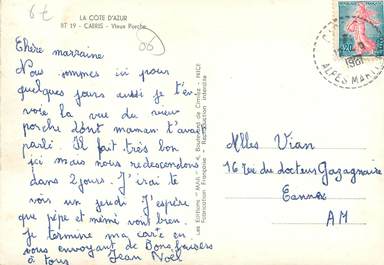 6€
LA COTE D'AZUR
BT 19 - CABRIS - Vieux Porche
Chère marraine
Nous sommes ici pour
quelques jours aussi je t'en
voie la vue du vieux
porche dont maman t'avait
parlé. Il fait très bon
ici mais nous redescendons
dans 2 jours. J'irai te
voir un jeudi J'espère
que pépé et mémé vont bien.
je termine ma carte en
vous envoyant de Bons baisers
à tous Jean Noël
Les Editions "MAR" 4, Boulevard de Cimiez - NICE
Fabrication Française - Reproduction interdite
0,20
1961
ALPES MARIT
Mlles Vian
16 rue du docteur Gazagnaire
Cannes
AM